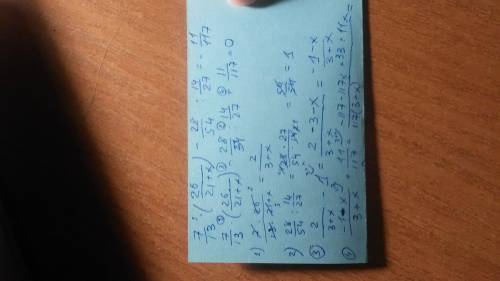 7/13 : (26/(21+x)) - 28/54 : 14/27 = - 11/117
7/13 · (26/(21+x)) - 28/54 : 14/27 + 11/117 = 0
1) 7 · 26 / 13 · 21+x = 2/(3+x)
2) 28/54 : 14/27 = 28 · 27 / 54 · 14 = 54/54 = 1
3) 2/(3+x) - 1 = (2-3-x)/(3+x) = (-1-x)/(3+x)
4) (-1-x)/(3+x) + 11/117 = (-117-117x+33+11x)/(117(3+x)) =